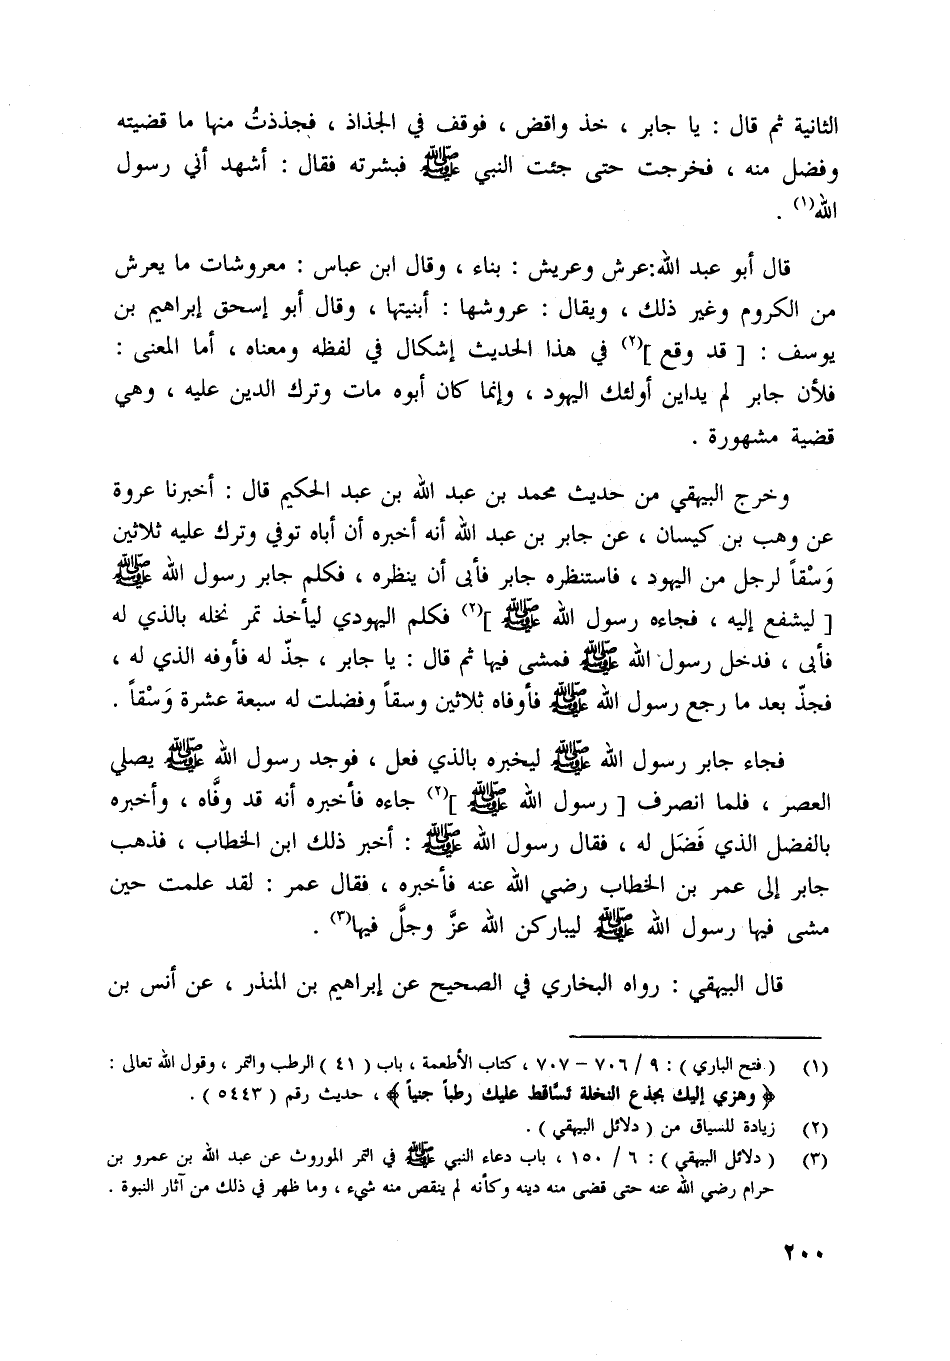 الثانية ثم قال : يا جابر ، خذ واقض ، فوقف في الجذاذ ، فجذذتُ منها ما قضيته
وفضل منه ، فخرجت حتى جئت النبي ﷺ فبشرته فقال : أشهد أني رسول
الله(١) .
قال أبو عبد الله:عرش وعريش : بناء ، وقال ابن عباس : معروشات ما يعرش
من الكروم وغير ذلك ، ويقال : عروشها : أبنيتها ، وقال أبو إسحق إبراهيم بن
يوسف : [ قد وقع ](٢) في هذا الحديث إشكال في لفظه ومعناه ، أما المعنى :
فلأن جابر لم يداين أولئك اليهود ، وإنما كان أبوه مات وترك الدين عليه ، وهي
قضية مشهورة .
وخرج البيهقي من حديث محمد بن عبد الله بن عبد الحكيم قال : أخبرنا عروة
عن وهب بن كيسان ، عن جابر بن عبد الله أنه أخبره أن أباه توفي وترك عليه ثلاثين
وَسْقاً لرجل من اليهود ، فاستنظره جابر فأبى أن ينظره ، فكلم جابر رسول الله ﷺ
[ ليشفع إليه ، فجاءه رسول الله ﷺ ](٢) فكلم اليهودي ليأخذ تمر نخله بالذي له
فأبى ، فدخل رسول الله ﷺ فمشى فيها ثم قال : يا جابر ، جذّ له فأوفه الذي له ،
فجذّ بعد ما رجع رسول الله ﷺ فأوفاه ثلاثين وسقاً وفضلت له سبعة عشرة وَسْقاً .
فجاء جابر رسول الله ﷺ ليخبره بالذي فعل ، فوجد رسول الله ﷺ يصلي
العصر ، فلما انصرف [ رسول الله ﷺ ](٢) جاءه فأخبره أنه قد وفَّاه ، وأخبره
بالفضل الذي فَضَل له ، فقال رسول الله ﷺ : أخبر ذلك ابن الخطاب ، فذهب
جابر إلى عمر بن الخطاب رضي الله عنه فأخبره ، فقال عمر : لقد علمت حين
مشى فيها رسول الله ﷺ ليباركن الله عزَّ وجلَّ فيها(٣) .
قال البيهقي : رواه البخاري في الصحيح عن إبراهيم بن المنذر ، عن أنس بن
(١) ( فتح الباري ) : ٩ / ٧٠٦ – ٧٠٧ ، كتاب الأطعمة ، باب ( ٤١ ) الرطب والتمر ، وقول الله تعالى :
﴿ وهزي إليك بجذع النخلة تسَّاقط عليك رطباً جنياً ﴾ ، حديث رقم ( ٥٤٤٣ ) .
(٢) زيادة للسياق من ( دلائل البيهقي ) .
(٣) ( دلائل البيهقي ) : ٦ / ١٥٠ ، باب دعاء النبي ﷺ في التمر الموروث عن عبد الله بن عمرو بن
حرام رضي الله عنه حتى قضى منه دينه وكأنه لم ينقص منه شيء ، وما ظهر في ذلك من آثار النبوة .
٢٠٠